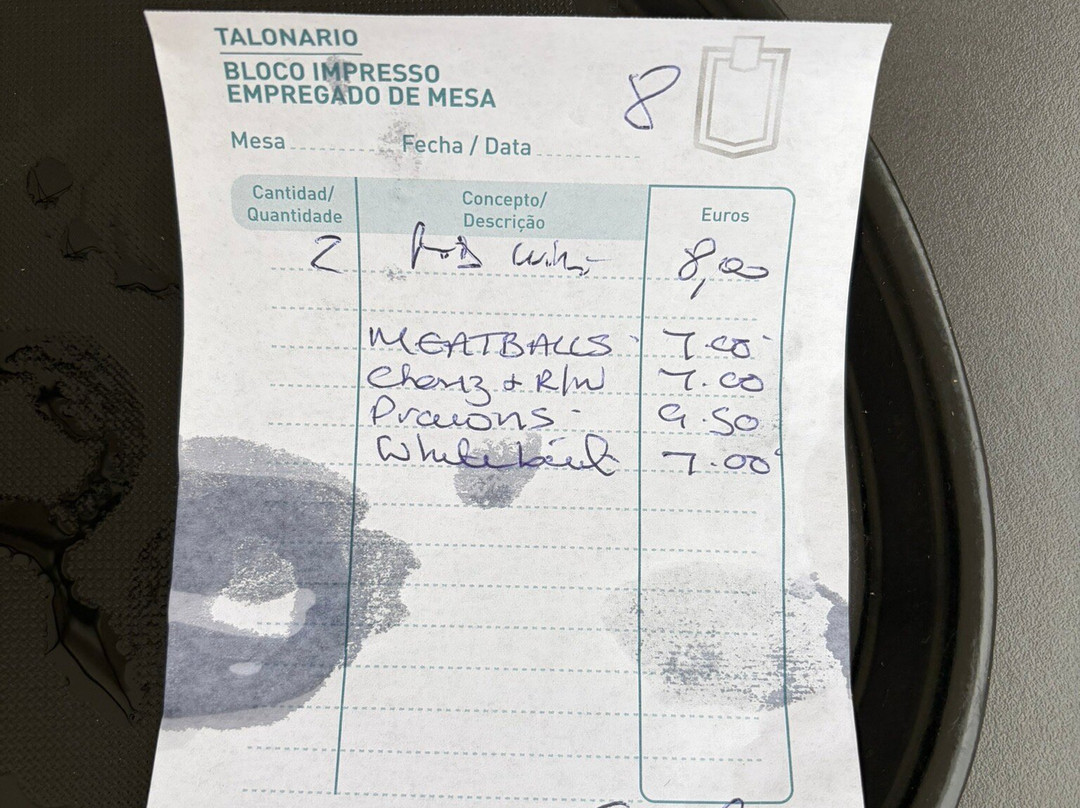 TALONARIO
BLOCO IMPRESSO
EMPREGADO DE MESA
8
Mesa Fecha / Data
Cantidad/ Quantidade Concepto/ Descrição Euros
2 8,00
MEATBALLS 7.00
Choriz + R/W 7.00
Prawns 9.50
Whitebait 7.00